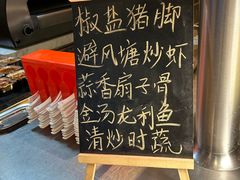 椒盐猪脚
避风塘炒虾
蒜香扇子骨
金汤龙利鱼
清炒时蔬